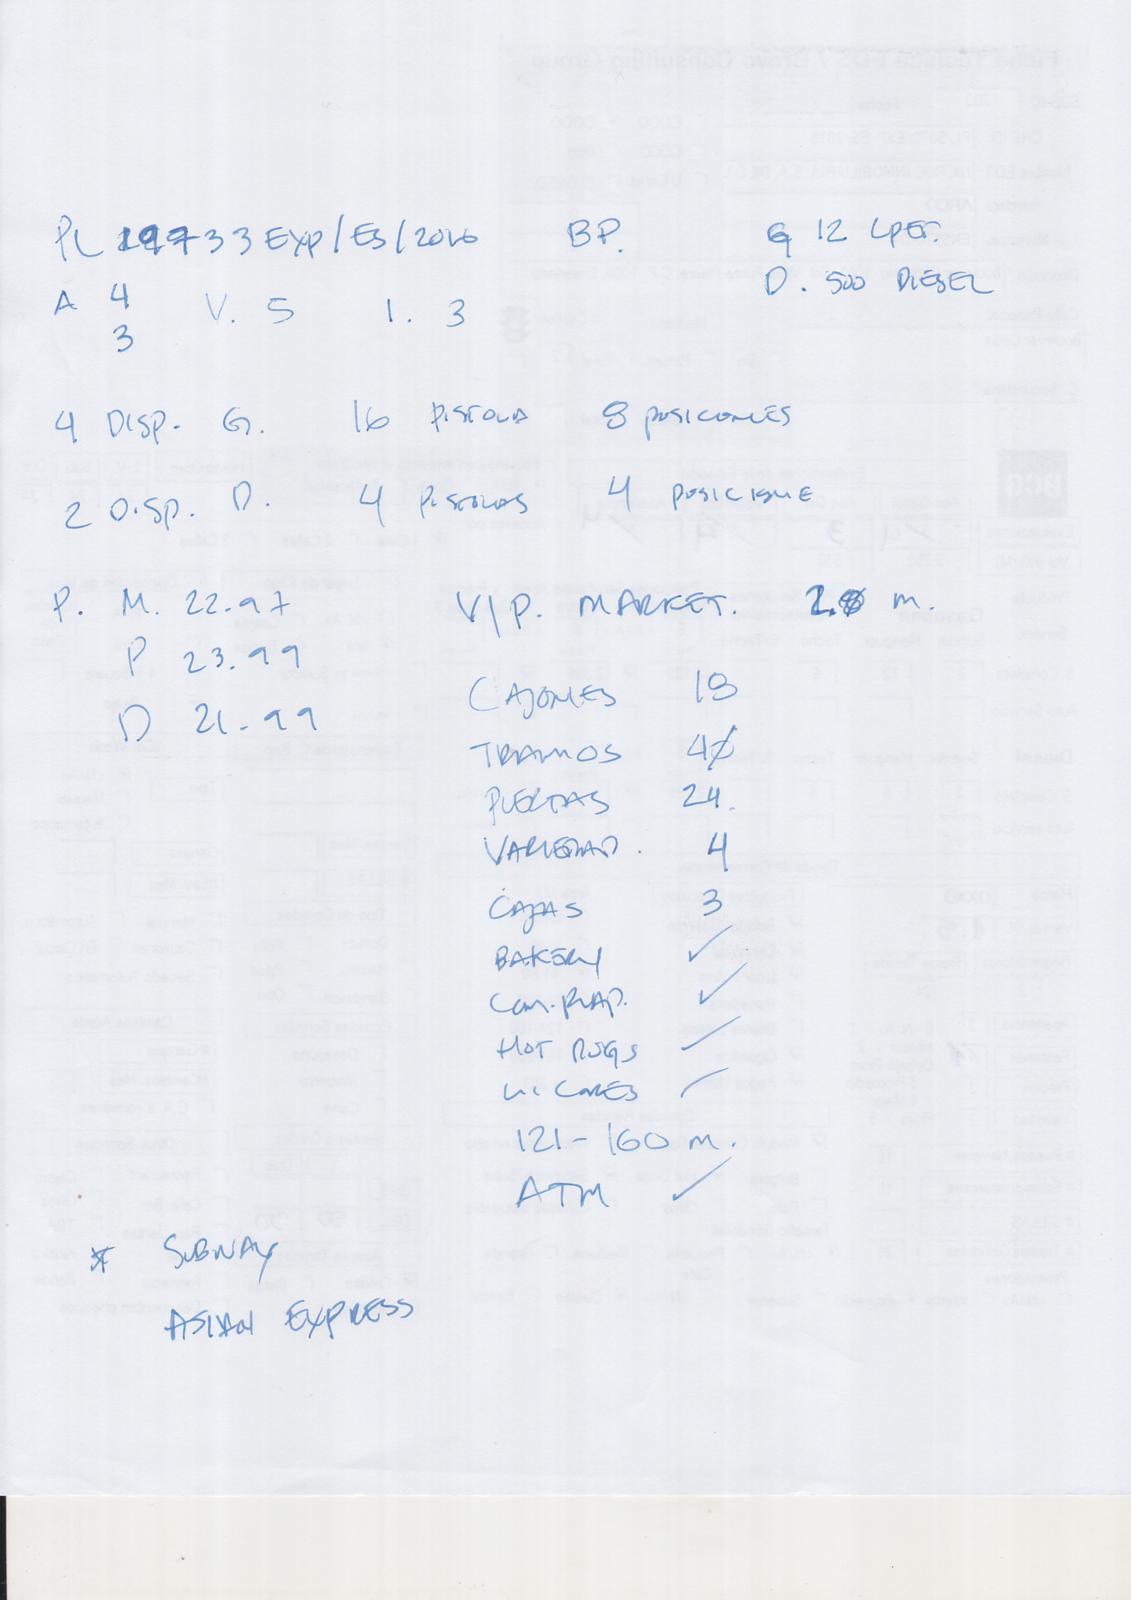 PL 19733 EXP/ES/2016 BP. G 12 LPET.
D. 500 DIESEL
A 4 V. 5 1. 3
3
4 DISP. G. 16 PISTOLA 8 POSICONES
2 DISP. D. 4 PISTOLAS 4 POSICIONE
P. M. 22.97 V/P. MARKET. m.
P 23.99
D 21-99
CAJONES 18
TRAMOS 40
PUERTAS 24.
VARIEDAD. 4
CAJAS 3
BAKERY ✓
COM. RAP. ✓
HOT DOGS ✓
LICORES ✓
121-160 m.
ATM ✓
* SUBWAY
ASIAN EXPRESS